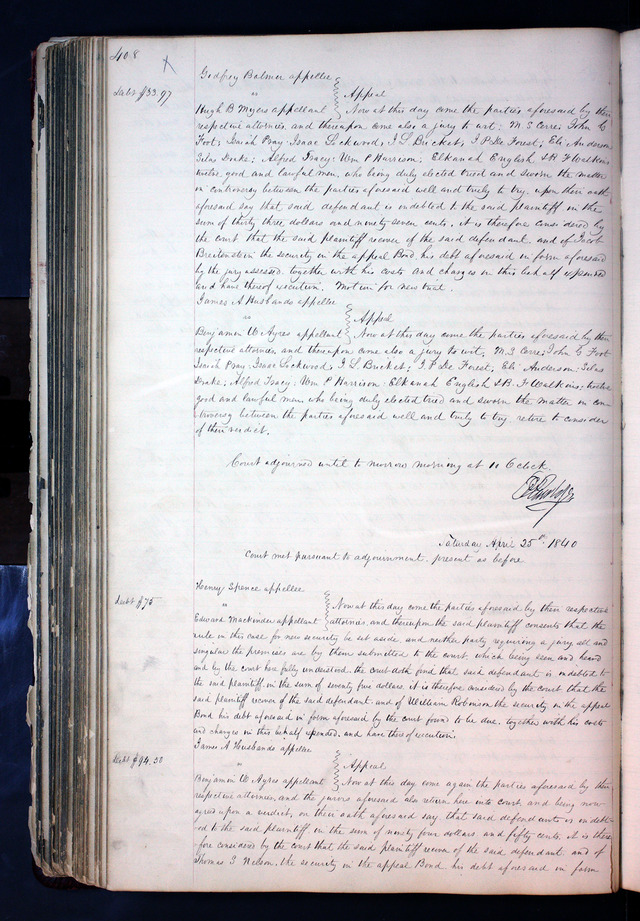 408
Godfrey Balmer appellee
Debt $33.97 " Appeal
Hugh B Myers appellant Now at this day come the parties aforesaid by their
respective attornies, and thereupon come also a jury to wit: M S Cerre; John C
Foot; Isaiah Pray; Isaac Lockwood; J L Bricket; J P De Forest; Eli Anderson
Silas Drake; Alfred Tracy; Wm P Harrison; Elkanah English & B F Watkins
twelve good and lawful men, who being duly elected tried and sworn the matter
in controversy between the parties aforesaid well and truly to try, upon their oath
aforesaid say that said defendant is indebted to the said plaintiff in the
sum of thirty three dollars and ninety seven cents. it is therefore considered by
the court that the said plaintiff recover of the said defendant and of Jacob
the security in the appeal Bond, his debt aforesaid in form aforesaid
by the jury assessed, together with his costs and charges in this behalf expended
and have thereof execution. Motion for new trial.
James A Husbands appellee
" Appeal
Benjamin W Ayres appellant Now at this day come the parties aforesaid by their
respective attornies and thereupon come also a jury to wit, M S Cerre; John C Foot
Isaiah Pray; Isaac Lockwood, J L Bricket; J P De Forest; Eli Anderson; Silas
Drake; Alfred Tracy; Wm P Harrison; Elkanah English & B. F Watkins; twelve
good and lawful men, who being duly elected tried and sworn the matter in con-
troversy between the parties aforesaid well and truly to try, retire to consider
of their verdict.
Court adjourned until to morrow morning at 11 O'clock.
Saturday April 25th 1840
Court met pursuant to adjournment, present as before
Henry Spence appellee
Debt $75 " Now at this day come the parties aforesaid by their respective
Edward Mackinder appellant attornies, and thereupon the said plaintiff consents that the
rule in this case for new security be set aside, and neither party requiring a jury, all and
singular the premises are by them submitted to the court, which being seen and heard
and by the court here fully understood, the court doth find that said defendant is indebted to
the said plaintiff in the sum of seventy five dollars. it is therefore considered by the court that the
said plaintiff recover of the said defendant and of William Robinson the security in the appeal
Bond, his debt aforesaid in form aforesaid by the court found to be due, together with his costs
and charges in this behalf expended, and have thereof execution.
James A Husbands appellee
Debt $94.50 " Appeal
Benjamin W Ayres appellant Now at this day come again the parties aforesaid by their
respective attornies, and the jurors aforesaid also return here into court, and being now
agreed upon a verdict, on their oath aforesaid say, that said defendant is indebt-
ed to the said plaintiff in the sum of ninety four dollars and fifty cents. it is there
fore considered by the court that the said plaintiff recover of the said defendant and of
Thomas S Nelson, the security in the appeal Bond his debt aforesaid in form